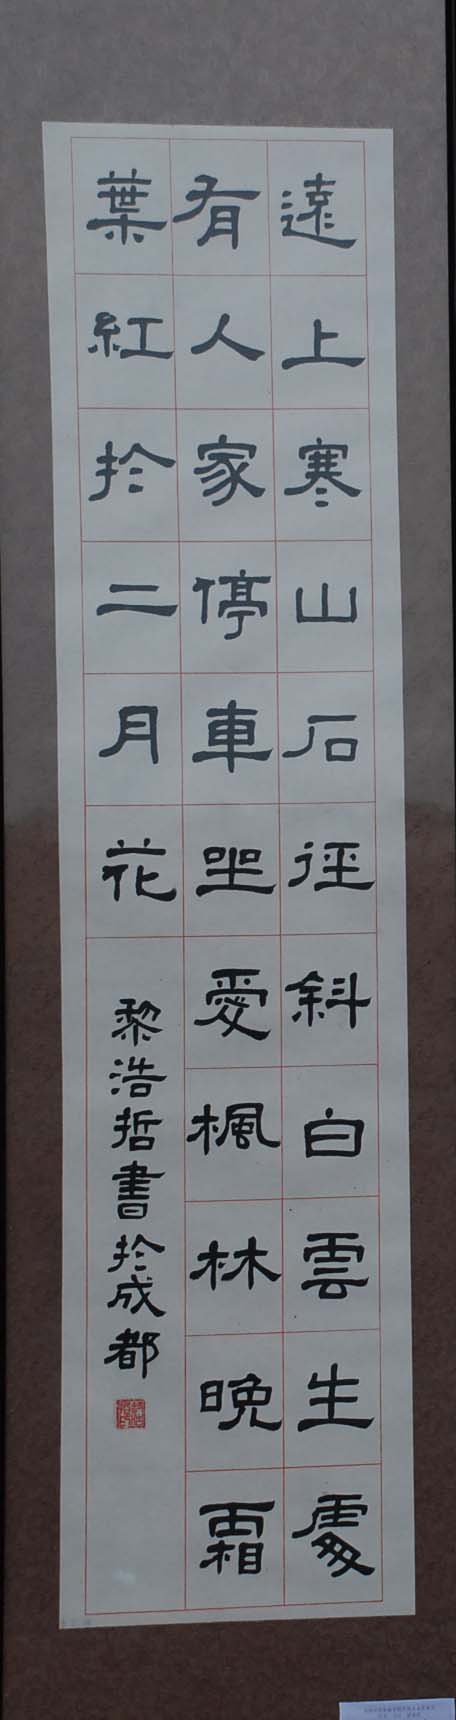 遠上寒山石徑斜白雲生處
有人家停車坐愛楓林晚霜
葉紅於二月花
黎浩哲書於成都